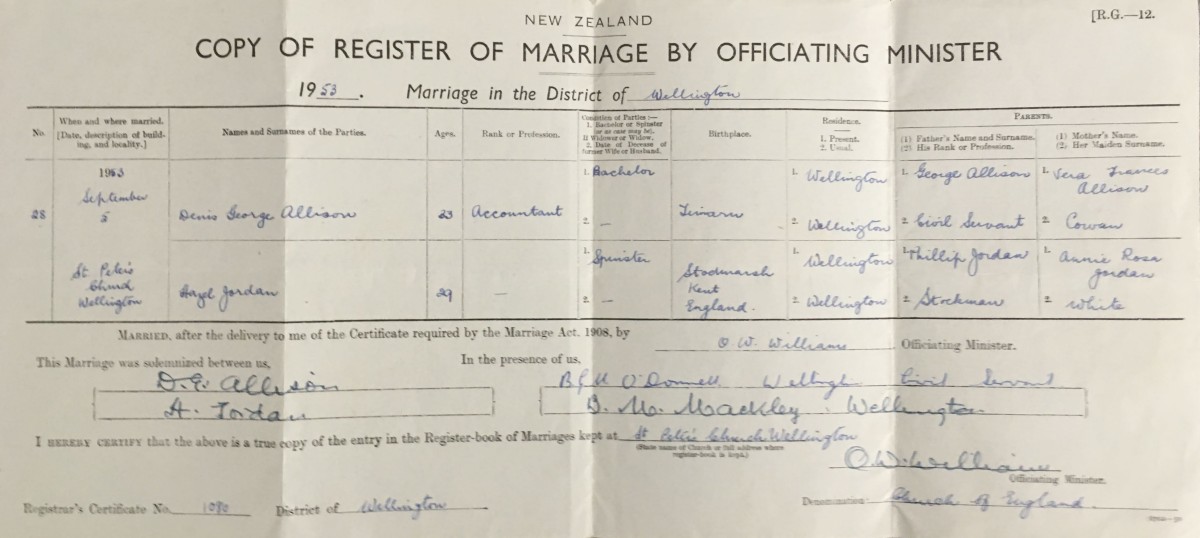 NEW ZEALAND
[R.G.—12.
COPY OF REGISTER OF MARRIAGE BY OFFICIATING MINISTER
1953. Marriage in the District of Wellington
No.
When and where married. [Date, description of building, and locality.]
Names and Surnames of the Parties.
Ages.
Rank or Profession.
Condition of Parties:—
1. Bachelor or Spinster (or as case may be).
If Widower or Widow,
2. Date of Decease of former Wife or Husband.
Birthplace.
Residence.
1. Present.
2. Usual.
PARENTS.
(1) Father's Name and Surname.
(2) His Rank or Profession.
(1) Mother's Name.
(2) Her Maiden Surname.
28
1953
September
5
St Peter's
Church
Wellington
Denis George Allison
23
Accountant
1. Bachelor
2. —
Timaru
1. Wellington
2. Wellington
1. George Allison
2. Civil Servant
1. Vera Frances Allison
2. Cowan
Hazel Jordan
29
—
1. Spinster
2. —
Stodmarsh
Kent
England.
1. Wellington
2. Wellington
1. Phillip Jordan
2. Stockman
1. Annie Rosa Jordan
2. White
MARRIED, after the delivery to me of the Certificate required by the Marriage Act, 1908, by O. W. Williams Officiating Minister.
This Marriage was solemnized between us, In the presence of us,
D. G. Allison
O'Donnell Civil Servant
H. Jordan
D. M. Mackley. Wellington
I HEREBY CERTIFY that the above is a true copy of the entry in the Register-book of Marriages kept at St Peter's Church Wellington
(State name of Church or full address where register-book is kept.)
O. W. Williams
Officiating Minister.
Registrar's Certificate No. District of Wellington
Denomination: Church of England.